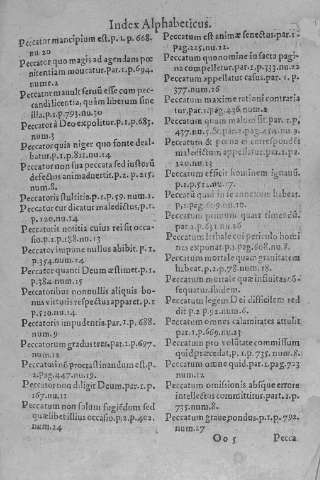 Index Alphabeticus.
Peccator mancipium est.p.1.p.668.
nu.20
Peccator quo magis ad agendam pœ
nitentiam mouetur.par.1.p.694.
num.2
Peccator mauult seruũ esse com pec-
candi licentia, quàm liberum sine
illa.p.1.p.793.nu.30
Peccator à Deo expolitur.p.1.p.683.
num.3
Peccator quia niger quo fonte deal-
batur.p.1.p.812.nu.14
Peccator non sua peccata sed iustorũ
defectus animaduertit.p.2.p.215.
num.8.
Peccatoris stultitia.p.1.p.59.num.1.
Peccator cur dicatur maledictus.p.1.
p.120.nu.14
Peccatoris notitia cuius rei sit occa-
sio.p.1.p.138.nu.13
Peccator impune nullus abibit.p.1.
p.354.num.14
Peccator quanti Deum æstimet.p.1.
p.384.num.15
Peccatoribus nonnullis aliquis bo-
nus virtutis respectus apparet.p.1.
p.510.nu.14
Peccatoris impudentia.par.1.p.688.
num.9
Peccatorum gradus tres.par.1.p.697.
num.12
Peccatori nõ procrastinandum est.p.
2.pag.447.nu.19.
Peccator non diligit Deum.par.1.p.
167.nu.11
Peccatum non solum fugiẽdum sed
quælibet illius occasio.p.2.p.402.
num.24
Peccatum est animæ senectus.par.1.
pag.225.nu.12.
Peccatum quo nomine in sacra pagi-
na compelletur.par.1.p.333.nu.12
Peccatum appellatur casus.par.1.p.
377.num.16
Peccatum maxime rationi contraria
tur.par.1.pag.436.num.2
Peccatum quam malum sit.par.1.p.
437.nu.5.& par.2.pag.434.nu.9
Peccatum & pœna ei correspondẽs
maledictum appellatur.par.1.pa.
120.nu.13
Peccatum efficit hominem ignauũ.
p.1.p.512.nu.17.
Peccatũ quid in se annexum habeat.
p.1.pag.609.nu.10.
Peccatum primum quare timendũ.
par.1.p.631.nu.26
Peccatum lethale cui periculo homi
nes exponat.p.1.pag.608.nu.8.
Peccatum mortale quam grauitatem
habeat.p.1.p.78.num.18.
Peccatum mortale quæ infinitas cõ-
sequatur.ibidem.
Peccatum legem Dei difficilem red
dit p.2 p.92.num.6.
Peccatum omnes calamitates attulit
par.1.p.669.nu.23
Peccatum pro voluptate commissum
quid præcedat.p.1.p.735.num.8.
Peccatum omne quid.par.1.pag.723
num.12
Peccatum omissionis absque errore
intellectus committitur.part.1.p.
735.num.8.
Peccatum graue pondus.p.1.p.792.
num.17
Oo 5 Pecca